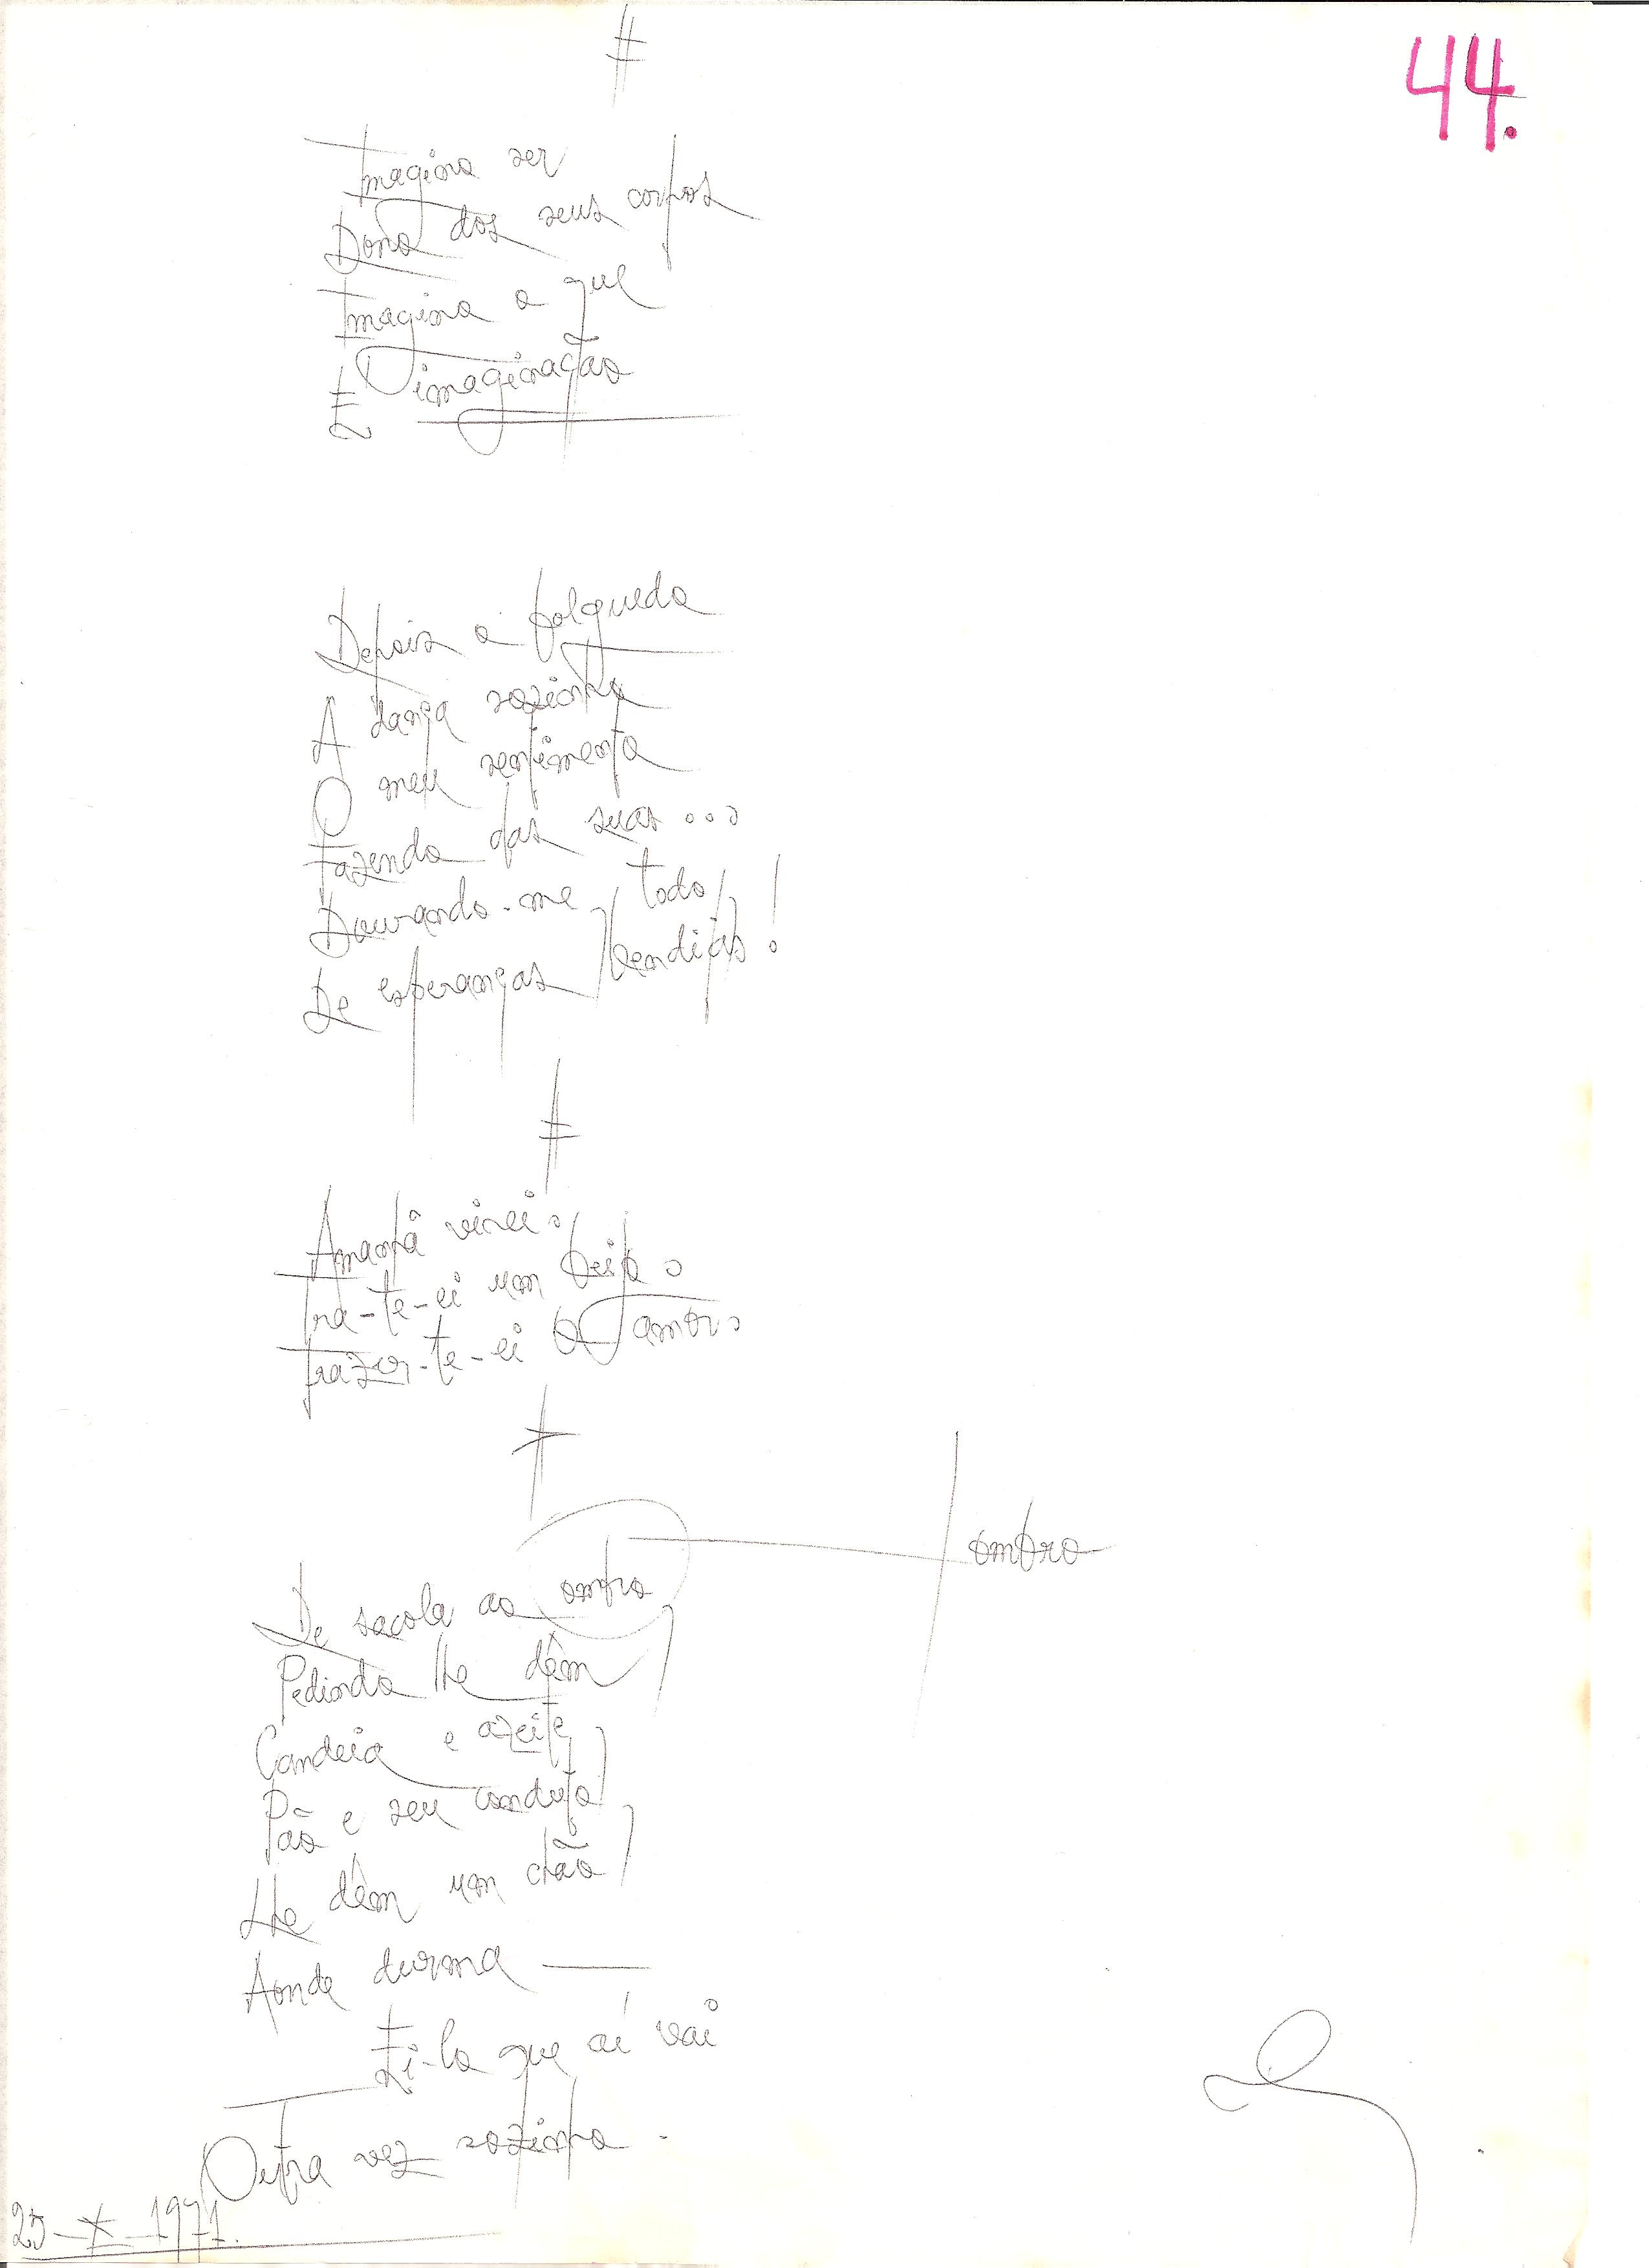 44.
#
Imagina ser
Dona dos seus corpos
Imagina o que
É imaginação
Depois o folguedo
A dança sozinha
O meu sentimento
Fazendo das suas...
Dourando-me todo
De esperanças bendiças!
#
Amanhã virei.
Tra-te-ei um beijo.
Trazer-te-ei o amor.
#
De sacola ao ombro
ombro
Pedindo lhe dêm
Candeia e azeite
Pão e seu conduto
Lhe dêm um chão
Aonde durma —
Ei-lo que aí vai
Outra vez sozinho.
25-X-1971.